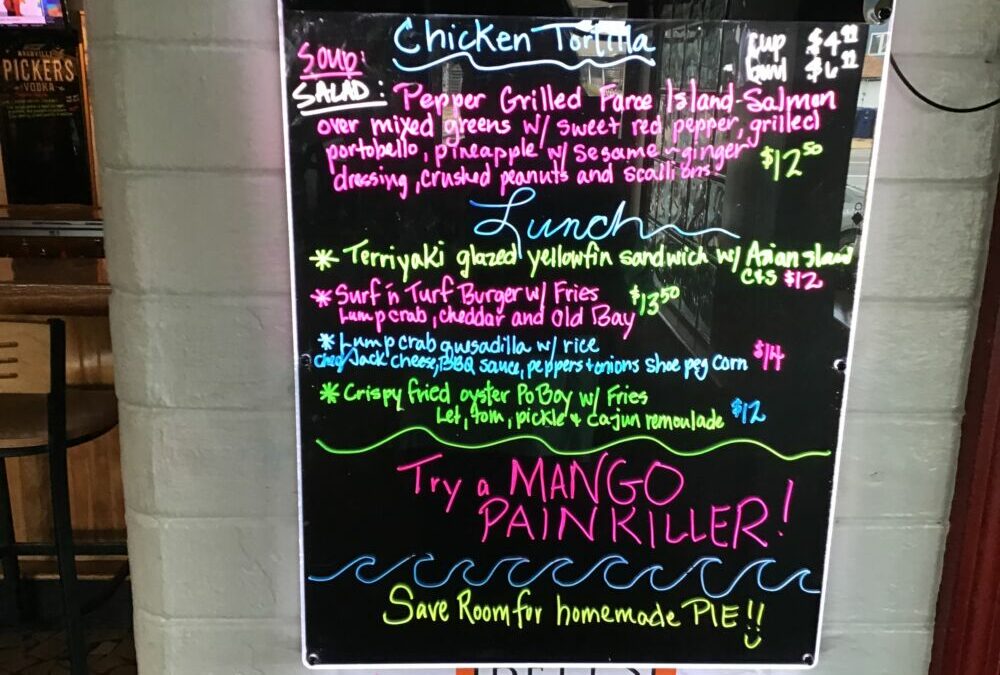 NASHVILLE
PICKERS
VODKA
SOUP: Chicken Tortilla Cup $4.99
Bowl $6.99
SALAD: Pepper Grilled Faroe Island Salmon
over mixed greens w/ sweet red pepper, grilled
portobello, pineapple w/ sesame-ginger
dressing, crushed peanuts and scallions. $12.50
Lunch
* Terriyaki glazed yellowfin sandwich w/ Asian slaw
C+S $12
* Surf 'n Turf Burger w/ Fries $13.50
Lump crab, cheddar and Old Bay
* Lump crab quesadilla w/ rice
Ched/Jack cheese, BBQ sauce, peppers + onions shoe peg corn $14
* Crispy fried oyster Po Boy w/ Fries
Let, tom, pickle + cajun remoulade $12
Try a MANGO
PAINKILLER!
Save Room for homemade PIE!!